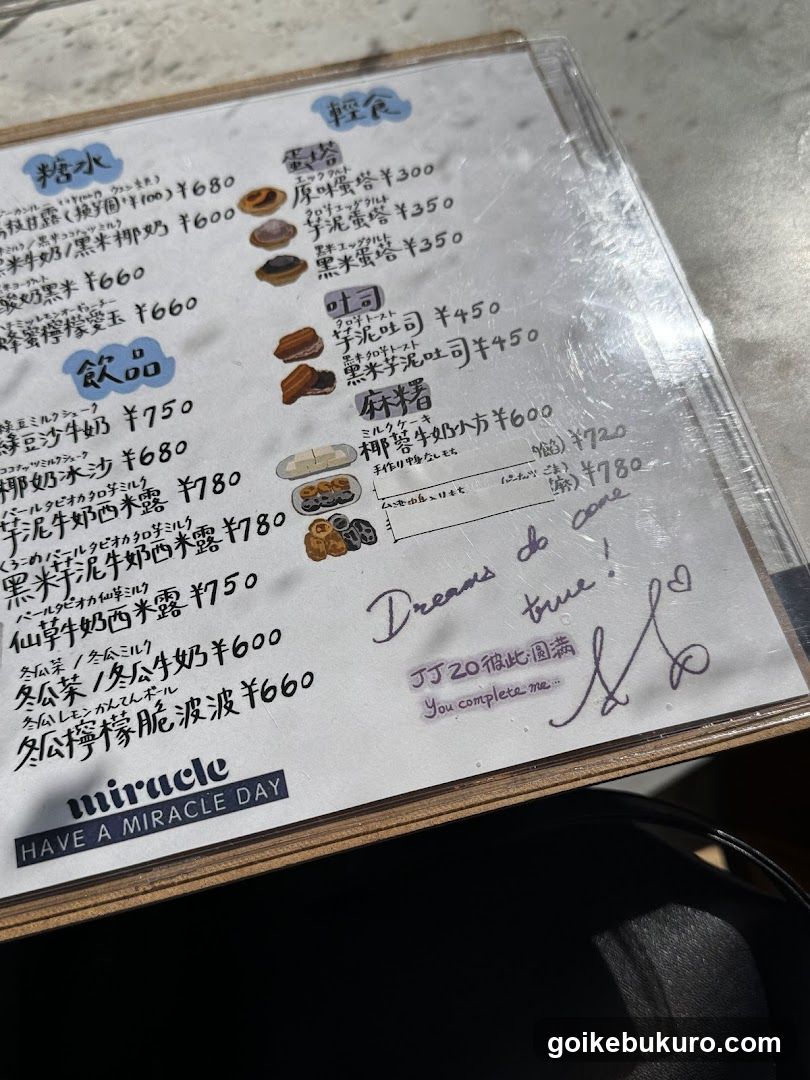 糖水
枝甘露(換芋圓¥100) ¥680
米牛奶/黑米椰奶 ¥600
酸奶黑米 ¥660
はちみつレモンオーギョーチー
蜂蜜檸檬愛玉 ¥660
飲品
緑豆ミルクシェーク
綠豆沙牛奶 ¥750
ココナッツミルクシェーク
椰奶冰沙 ¥680
パールタピオカタロ芋ミルク
芋泥牛奶西米露 ¥780
くろこめパールタピオカタロ芋ミルク
黑米芋泥牛奶西米露 ¥780
パールタピオカ仙草ミルク
仙草牛奶西米露 ¥750
冬瓜茶 / 冬瓜ミルク
冬瓜茶 / 冬瓜牛奶 ¥600
冬瓜レモンかんてんボール
冬瓜檸檬脆波波 ¥660
miracle
HAVE A MIRACLE DAY
輕食
蛋塔
エッグタルト
原味蛋塔 ¥300
タロ芋エッグタルト
芋泥蛋塔 ¥350
黒米エッグタルト
黑米蛋塔 ¥350
吐司
タロ芋トースト
芋泥吐司 ¥450
黒米タロ芋トースト
黑米芋泥吐司 ¥450
麻糬
ミルクケーキ
椰蓉牛奶小方 ¥600
手作り中身なしもち
餡) ¥720
¥780
Dreams do come
true!
JJ20 彼此·圓滿
You complete me...
goikebukuro.com